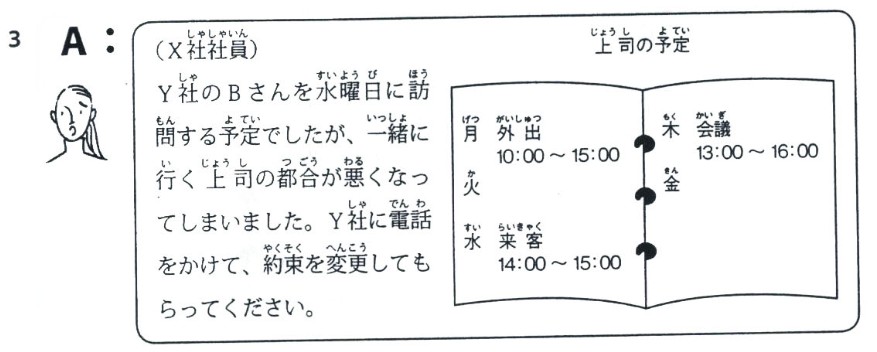 3 A：
（X社社員）
Y社のBさんを水曜日に訪
問する予定でしたが、一緒に
行く上司の都合が悪くなっ
てしまいました。Y社に電話
をかけて、約束を変更しても
らってください。
上司の予定
月 外出
10:00～15:00
火
水 来客
14:00～15:00
木 会議
13:00～16:00
金